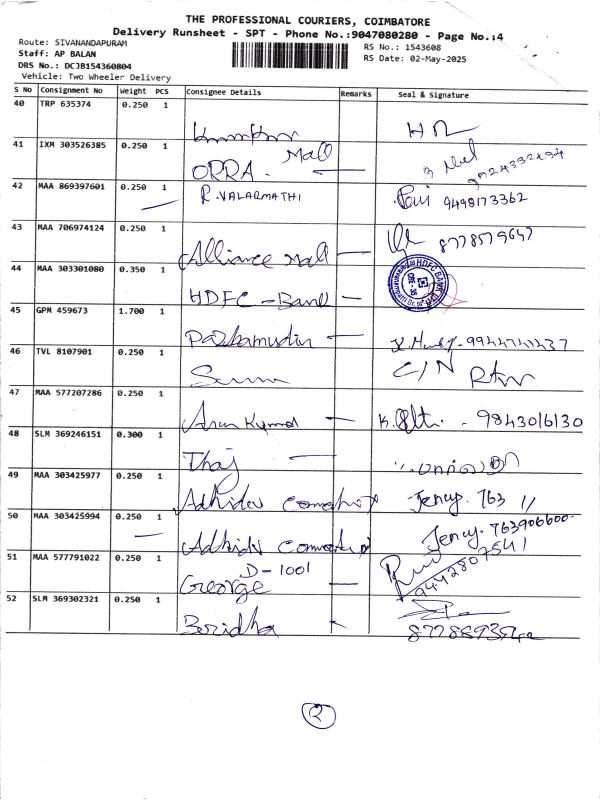 THE PROFESSIONAL COURIERS, COIMBATORE
Delivery Runsheet - SPT - Phone No.:9047080280 - Page No.:4
Route: SIVANANDAPURAM
RS No.: 1543608
Staff: AP BALAN
RS Date: 02-May-2025
DRS No.: DCJB154360804
Vehicle: Two Wheeler Delivery
S No Consignment No Weight PCS Consignee Details Remarks Seal & Signature
40 TRP 635374 0.250 1
41 IXM 303526385 0.250 1
ORRA. Mall
42 MAA 869397601 0.250 1 R. VALARMATHI 9498173362
43 MAA 706974124 0.250 1
Alliance Mall
44 MAA 303301080 0.350 1
HDFC - Bank HDFC BANK
45 GPM 459673 1.700 1
46 TVL 8107901 0.250 1
C/N
47 MAA 577207286 0.250 1
Arun Kumar K. - 9843016130
48 SLM 369246151 0.300 1
Thaj
49 MAA 303425977 0.250 1
Adhidev Jency. 763 11
50 MAA 303425994 0.250 1
Adhidev Jency. 763906600
51 MAA 577791022 0.250 1
D-1001
George 9442807541
52 SLM 369302321 0.250 1
2